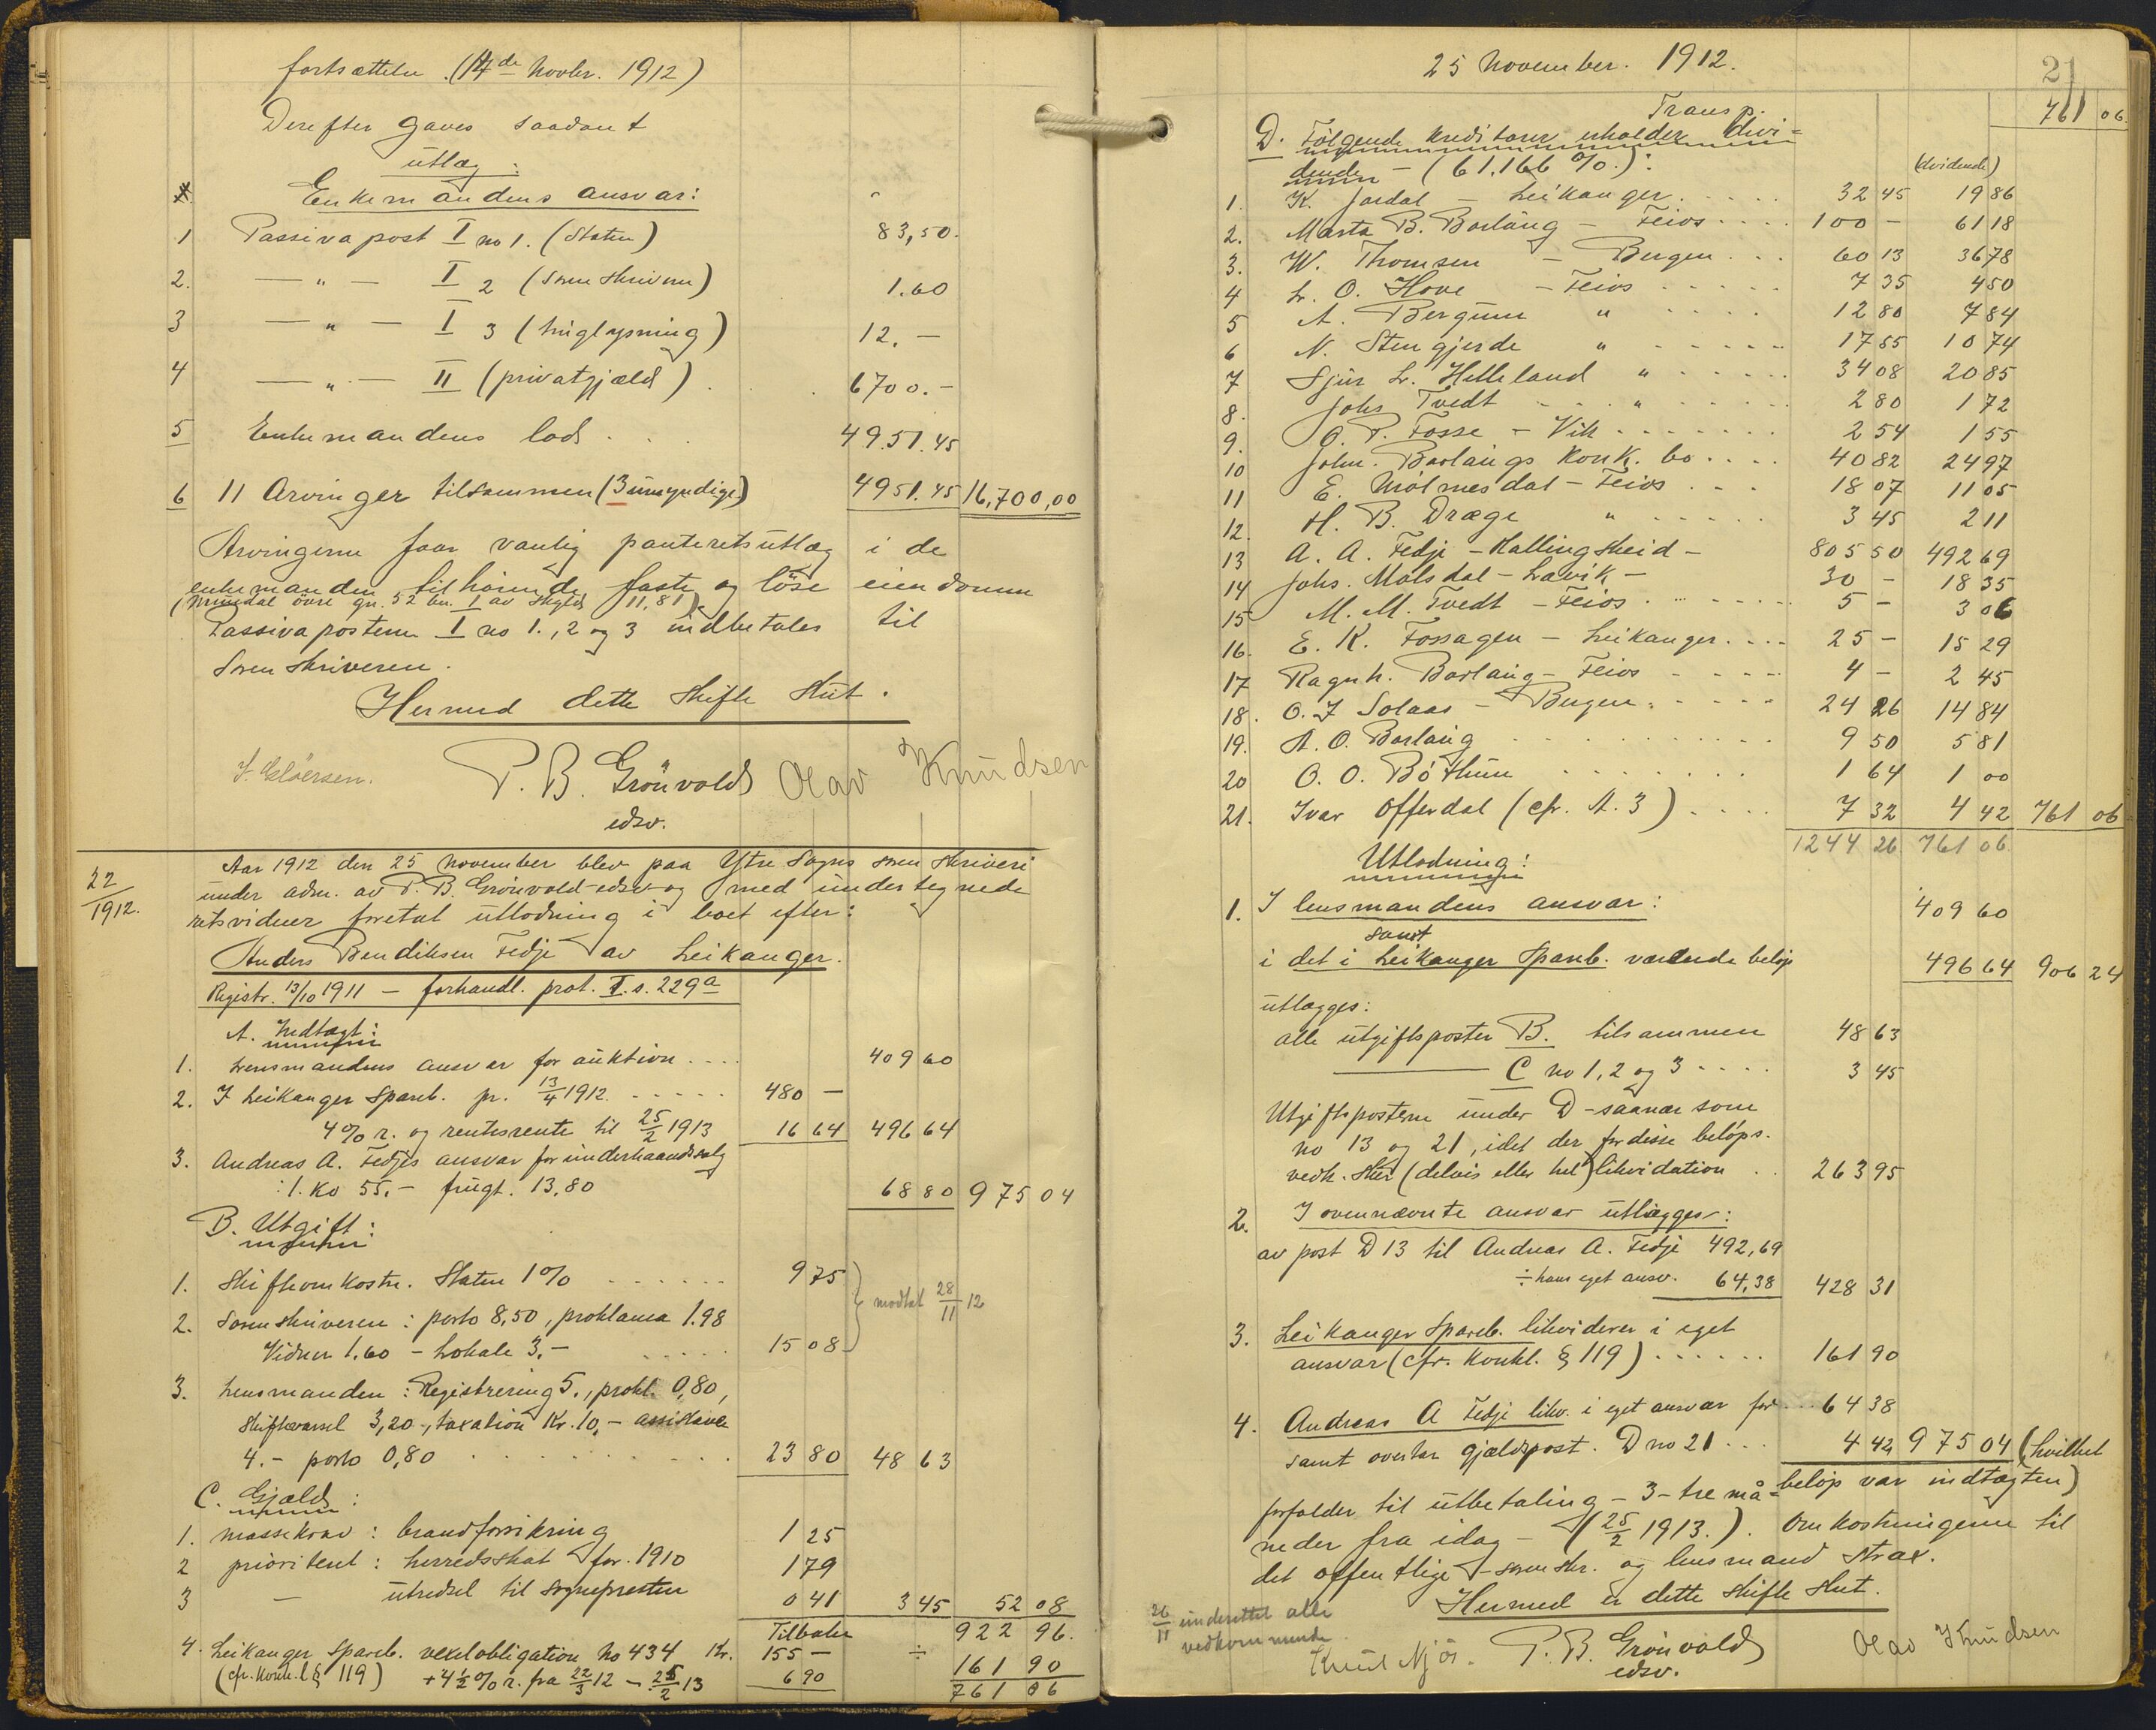 fortsættelse (14de Novbr. 1912)
Derefter gaves saadant
utlæg:
Enkemandens ansvar:
1 Passiva post I no 1. (Staten) 83,50.
2. — " — I 2 (Sorenskriveren) 1.60
3 — " — I 3 (tinglysning) 12.—
4 — " — II (privatgjæld) . . 6700.—
5 Enkemandens lod . . . 4951.45
6 11 Arvinger tilsammen (3 umyndige) 4951.45 16,700,00
Arvingerne faar vanlig panteretsutlæg i de
enkemanden tilhörende faste og löse eiendomme
(Mundal övre gn. 52 bn. 1 av skyld 11,81).
Passivaposterne I no 1., 2 og 3 indbetales til
Sorenskriveren.
Hermed dette skifte slut.
P. B. Grönvold Olav Knudsen
edsv.
22/1912. Aar 1912 den 25 November blev paa Ytre Sogns sorenskriveri
under adm. av P. B. Grönvold edsv. og med undertegnede
retsvidner foretat utlodning i boet efter:
Anders Bendiksen Fedje av Leikanger.
Registr. 13/10 1911 — forhandl. prot. I. s. 229a
A. Indtægt:
1. Lensmandens ansvar for auktion .... 409 60
2. I Leikanger Spareb. pr. 13/4 1912. ..... 480 —
4% r. og rentesrente til 25/2 1913 16 64 496 64
3. Andreas A. Fedjes ansvar for underhaandssalg
: 1. Ko 55.— frugt. 13,80 68 80 975 04
B. Utgift:
1. Skifteomkostn. Staten 1% ...... 9 75
modtat 28/11 12
2. Sorenskriveren: porto 8,50, proklama 1.98
Vidner 1.60 — Lokale 3.— ..... 15 08
3. Lensmanden: Registrering 5., prokl. 0,80,
Skiftevarsel 3,20-, taxation Kr. 10,— assistance
4.- porto 0,80 ........ 23 80 48 63
C. Gjæld:
1. massekrav: brandforsikring 1 25
2 prioritert: herredsskat for 1910 1 79
3 — utredsel til sognepresten 0 41 3 45 52 08
Tilbake 922 96.
4. Leikanger Spareb. vexelobligation No 434 Kr. 155 — ÷ 161 90
(cfr. Konk.l § 119) + 4½% r. fra 22/3 12 — 25/2 13 6 90 761 06
25 November. 1912.
21
Transp. 761 06
D. Følgende kreditorer erholder divi=
dende — (61.166 %): (dividende)
1. K. Jordal — Leikanger ..... 32 45 19 86
2. Marta B. Borlaug — Feios .... 100 — 61 18
3. W. Thomsen — Bergen ... 60 13 36 78
4 L. O. Hove — Feios ..... 7 35 4 50
5 A. Bergum " .... 12 80 7 84
6 N. Stengjerde " ..... 17 55 10 74
7 Sjur L. Helleland " ..... 34 08 20 85
8. Johs Tvedt " ..... 2 80 1 72
9. O. P. Fosse — Vik ....... 2 54 1 55
10 John. Borlaugs konk. bo .... 40 82 24 97
11 E. Mölmesdal — Feios ... 18 07 11 05
12. H. B. Dræge " ..... 3 45 2 11
13 A. A. Fedje — Kallingskeid — 805 50 492 69
14 Johs. Molsdal — Lavik — 30 — 18 35
15 M. M. Tvedt — Feios ...... 5 — 3 06
16. E. K. Fossagen — Leikanger .... 25 — 15 29
17 Ragnh. Borlaug — Feios ..... 4 — 2 45
18. O. J Solaas — Bergen ..... 24 26 14 84
19. A. O. Borlaug ......... 9 50 5 81
20 O. O. Böthun ....... 1 64 1 00
21. Ivar Offerdal (cfr. A. 3) .... 7 32 4 42 761 06
1244 26 761 06
Utlodning:
1. I lensmandens ansvar: 409 60
samt
i det i Leikanger Spareb. værende beløp 496 64 906 24
utlægges:
alle utgiftsposter B. tilsammen 48 63
——— C no 1, 2 og 3 .... 3 45
Utgiftsposterne under D — saanær som
no 13 og 21, idet der for disse beløps-
vedk. sker (delvis eller hel) likvidation .. 263 95
2. I ovennævnte ansvar utlægges:
av post D 13 til Andreas A. Fedje 492,69
÷ hans eget ansv. 64,38 428 31
3. Leikanger Spareb. likviderer i eget
ansvar (cfr. Konkl. § 119) ...... 161 90
4. Andreas A Fedje likv. i eget ansvar for ... 64 38
samt overtar gjældspost. D no 21 ... 4 42 975 04 (hvilket
beløp var indtægten)
forfalder til utbetaling — 3 — tre må=
neder fra idag — (25/2 1913.). Omkostningerne til
det offentlige — sorenskr. og lensmand strax.
Hermed er dette skifte slut.
26/11 underrettet alle
vedkommende
Knut Njös. P. B. Grönvold Olav Knudsen
edsv.